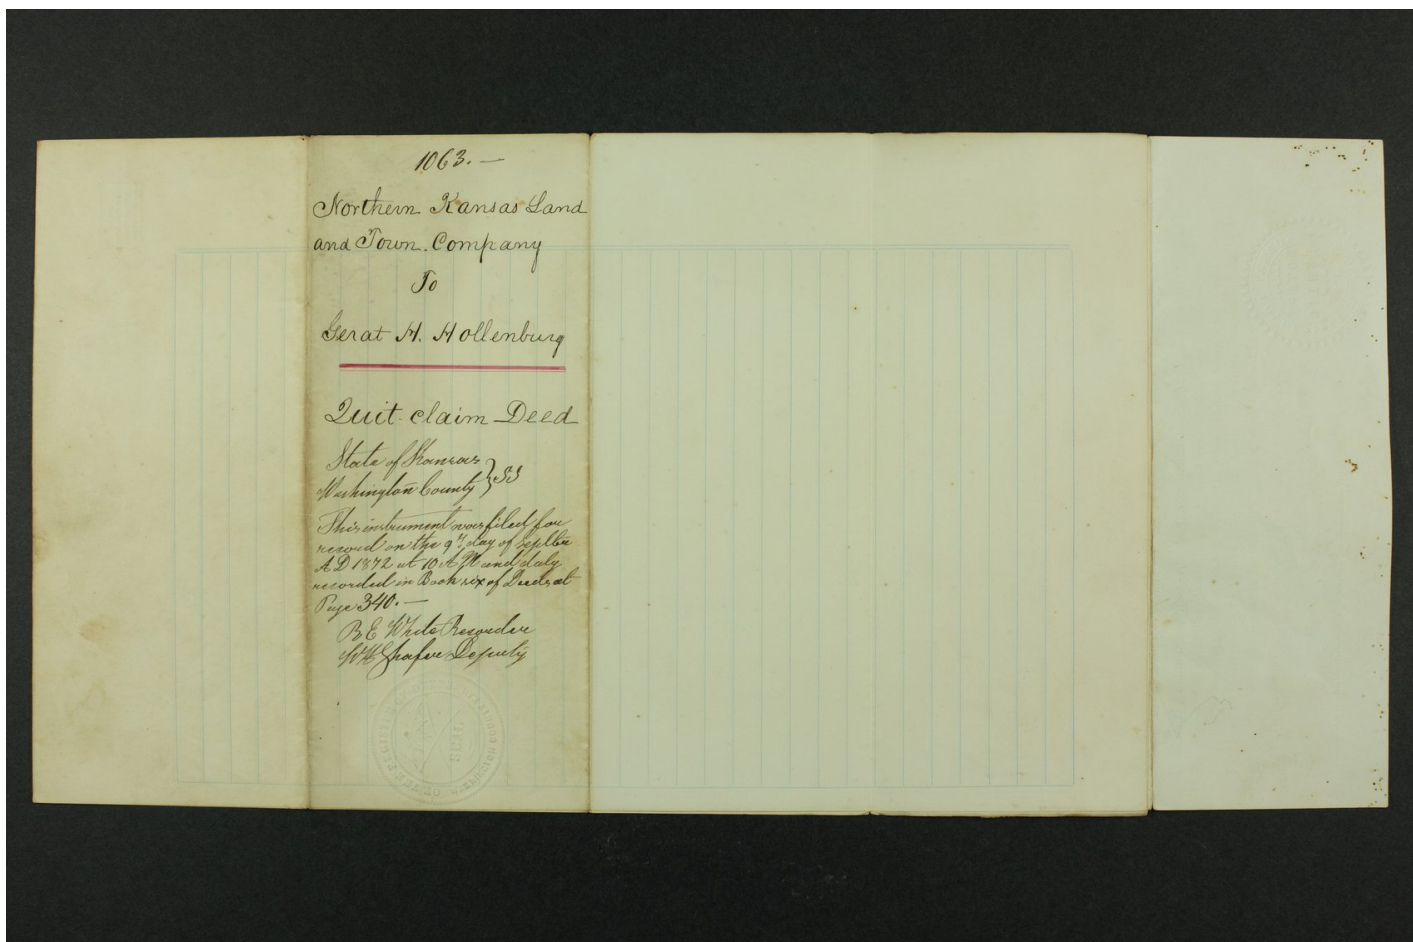 1063. —
Northern Kansas Land
and Town. Company
To
Gerat H. Hollenburg
Quit claim Deed
State of Kansas
Washington County } SS
This instrument was filed for
record on the 9th day of Septbr
A D 1872 at 10 A M and duly
recorded in Book six of Deeds at
Page 340. —
B E White Recorder
W H Shafer Deputy
SEAL